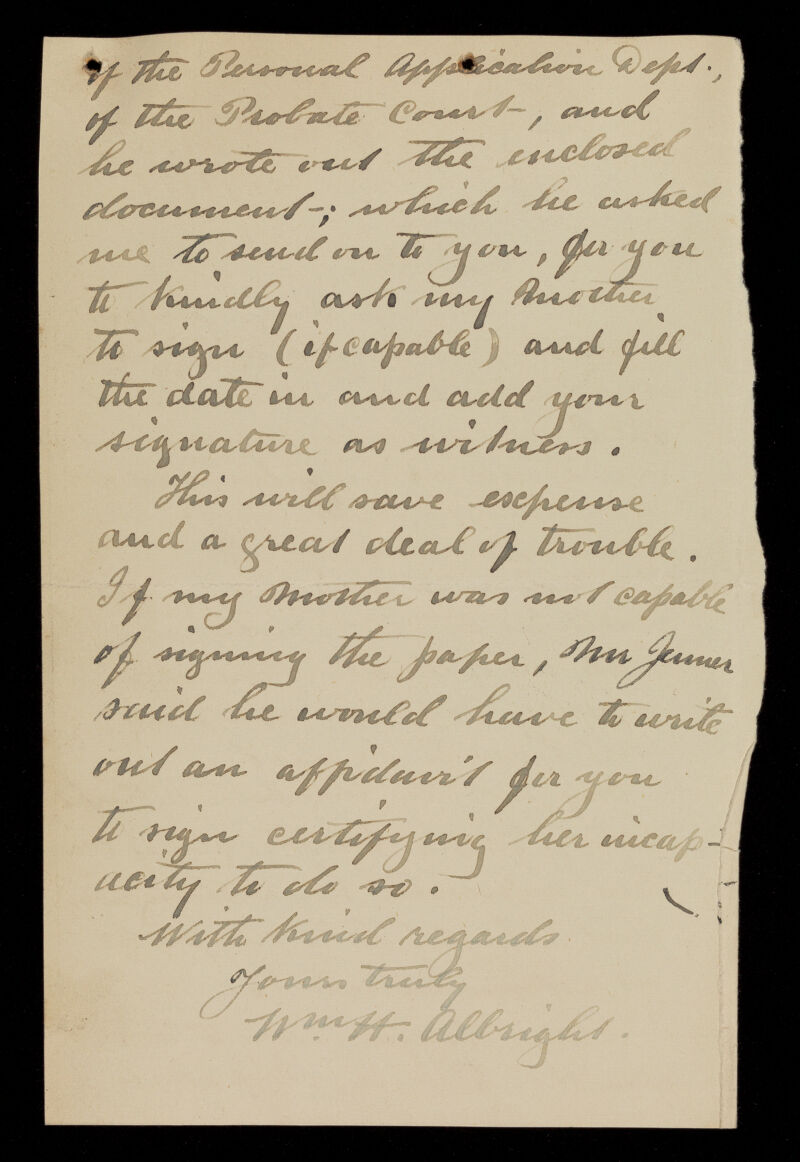 of the Personal Application Dept.,
of the Probate Court-, and
he wrote out the enclosed
document-; which he asked
me to send on to you, for you
to kindly ask my Mother
to sign (if capable) and fill
the date in and add your
signature as witness.
This will save expense
and a great deal of trouble.
If my Mother was not capable
of signing the paper, Mr Jenner
said he would have to write
out an affidavit for you
to sign certifying her incap-
acity to do so.
With kind regards
Yours truly
Wm H. Albright.